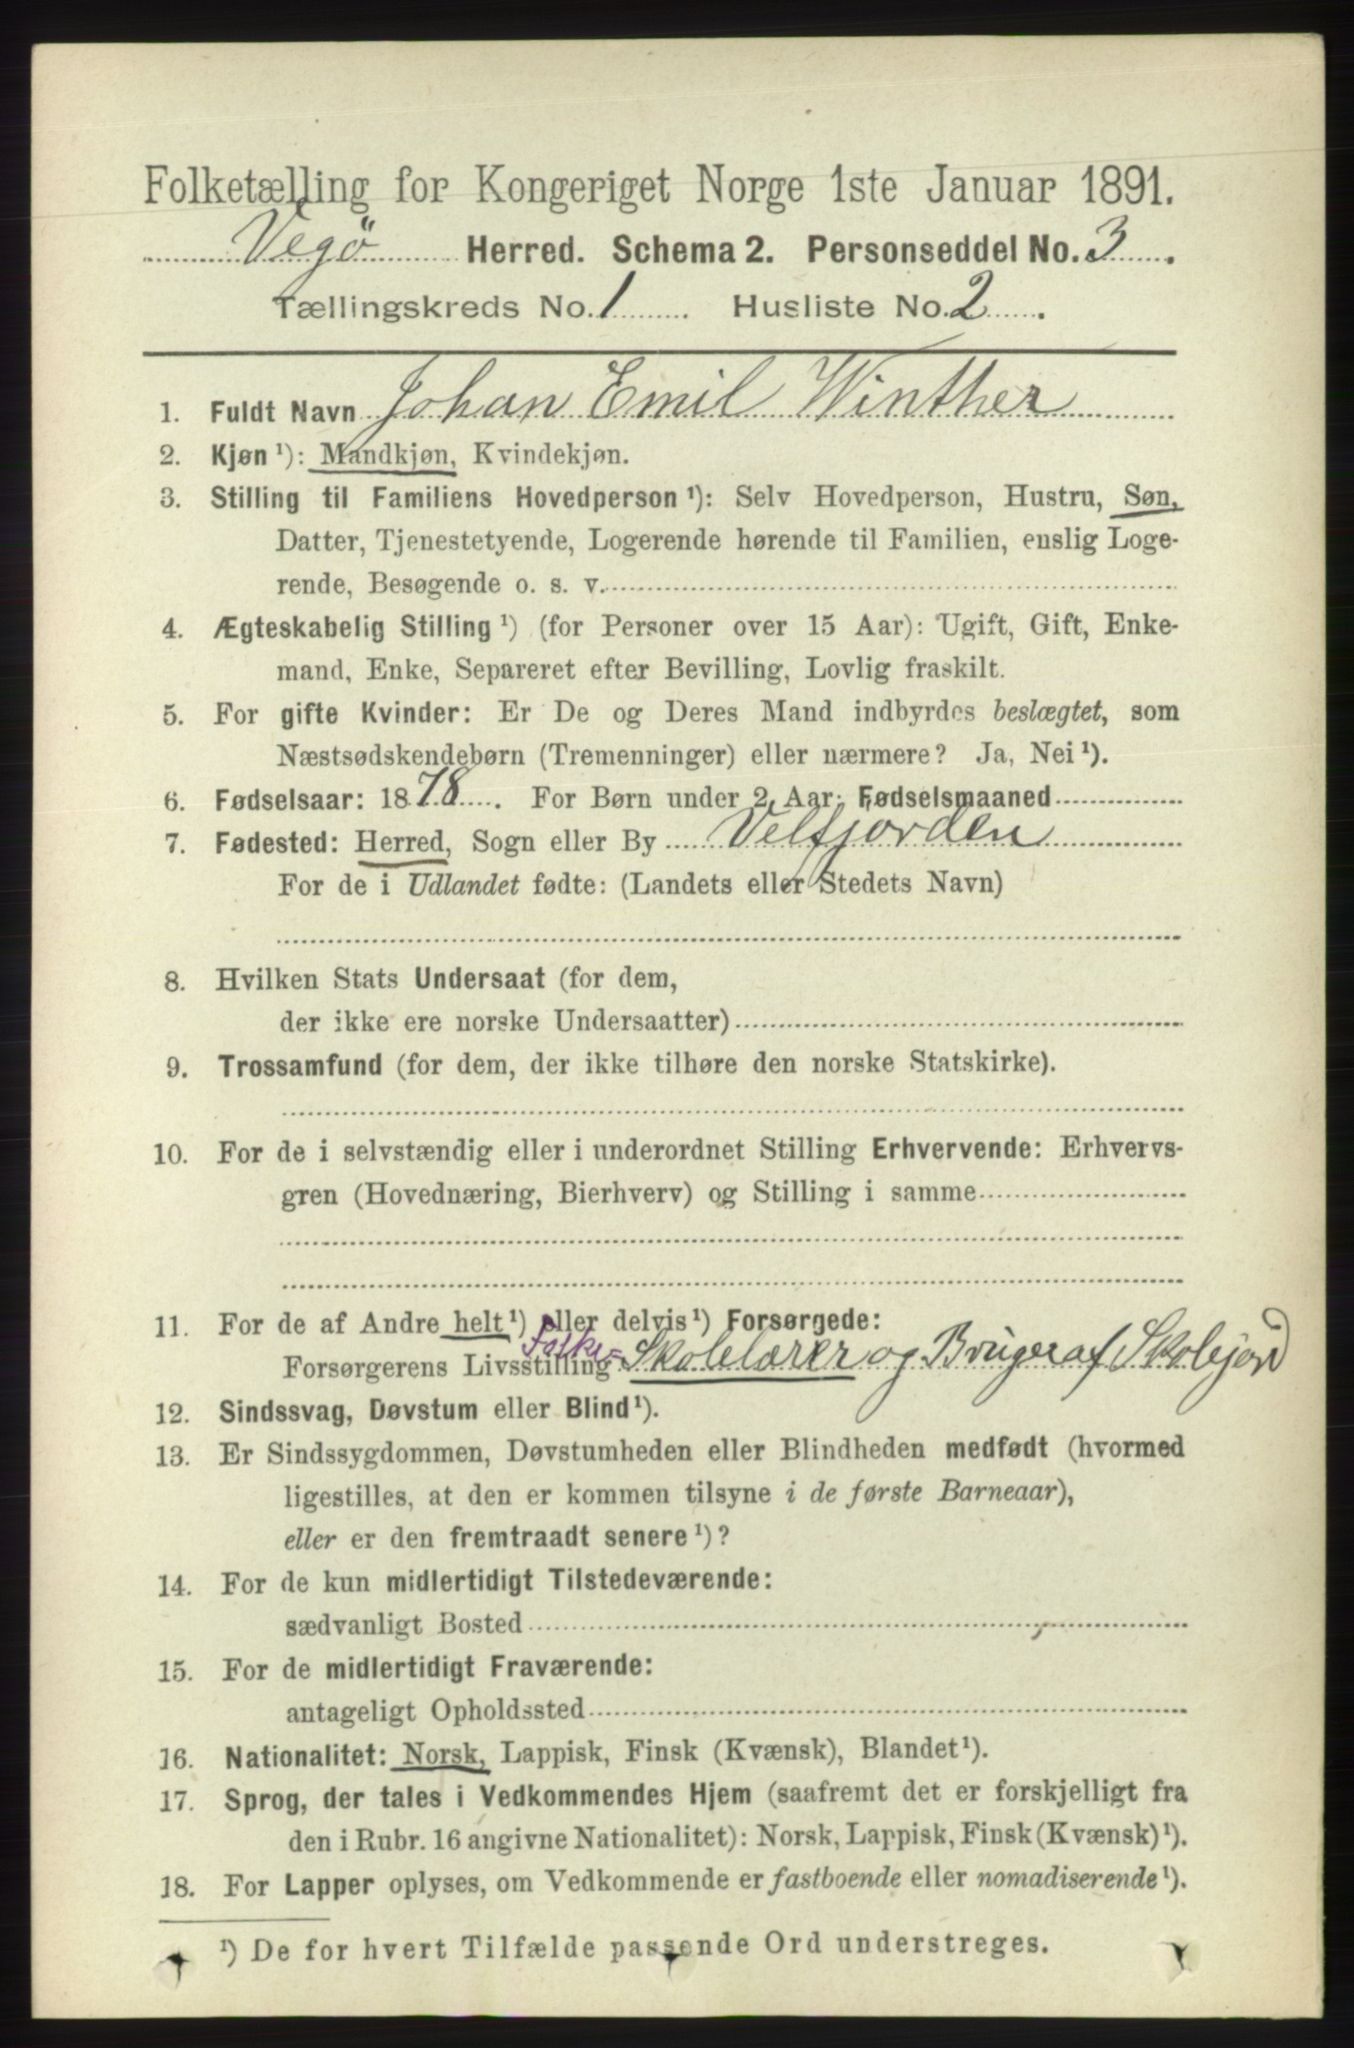 Folketælling for Kongeriget Norge 1ste Januar 1891.
Vegö Herred. Schema 2. Personseddel No. 3.
Tællingskreds No. 1 Husliste No. 2.
1. Fuldt Navn Johan Emil Winther
2. Kjøn ¹): Mandkjøn, Kvindekjøn.
3. Stilling til Familiens Hovedperson ¹): Selv Hovedperson, Hustru, Søn,
Datter, Tjenestetyende, Logerende hørende til Familien, enslig Loge-
rende, Besøgende o. s. v.
4. Ægteskabelig Stilling ¹) (for Personer over 15 Aar): Ugift, Gift, Enke-
mand, Enke, Separeret efter Bevilling, Lovlig fraskilt.
5. For gifte Kvinder: Er De og Deres Mand indbyrdes beslægtet, som
Næstsødskendebørn (Tremenninger) eller nærmere? Ja, Nei ¹).
6. Fødselsaar: 1878. For Børn under 2 Aar: Fødselsmaaned
7. Fødested: Herred, Sogn eller By Velfjorden
For de i Udlandet fødte: (Landets eller Stedets Navn)
8. Hvilken Stats Undersaat (for dem,
der ikke ere norske Undersaatter)
9. Trossamfund (for dem, der ikke tilhøre den norske Statskirke).
10. For de i selvstændig eller i underordnet Stilling Erhvervende: Erhvervs-
gren (Hovednæring, Bierhverv) og Stilling i samme
11. For de af Andre helt ¹) eller delvis ¹) Forsørgede:
Forsørgerens Livsstilling Folke= Skolelærer og Bruger af Skolejord
12. Sindssvag, Døvstum eller Blind ¹).
13. Er Sindssygdommen, Døvstumheden eller Blindheden medfødt (hvormed
ligestilles, at den er kommen tilsyne i de første Barneaar),
eller er den fremtraadt senere ¹)?
14. For de kun midlertidigt Tilstedeværende:
sædvanligt Bosted
15. For de midlertidigt Fraværende:
antageligt Opholdssted
16. Nationalitet: Norsk, Lappisk, Finsk (Kvænsk), Blandet ¹).
17. Sprog, der tales i Vedkommendes Hjem (saafremt det er forskjelligt fra
den i Rubr. 16 angivne Nationalitet): Norsk, Lappisk, Finsk (Kvænsk) ¹).
18. For Lapper oplyses, om Vedkommende er fastboende eller nomadiserende ¹).
¹) De for hvert Tilfælde passende Ord understreges.